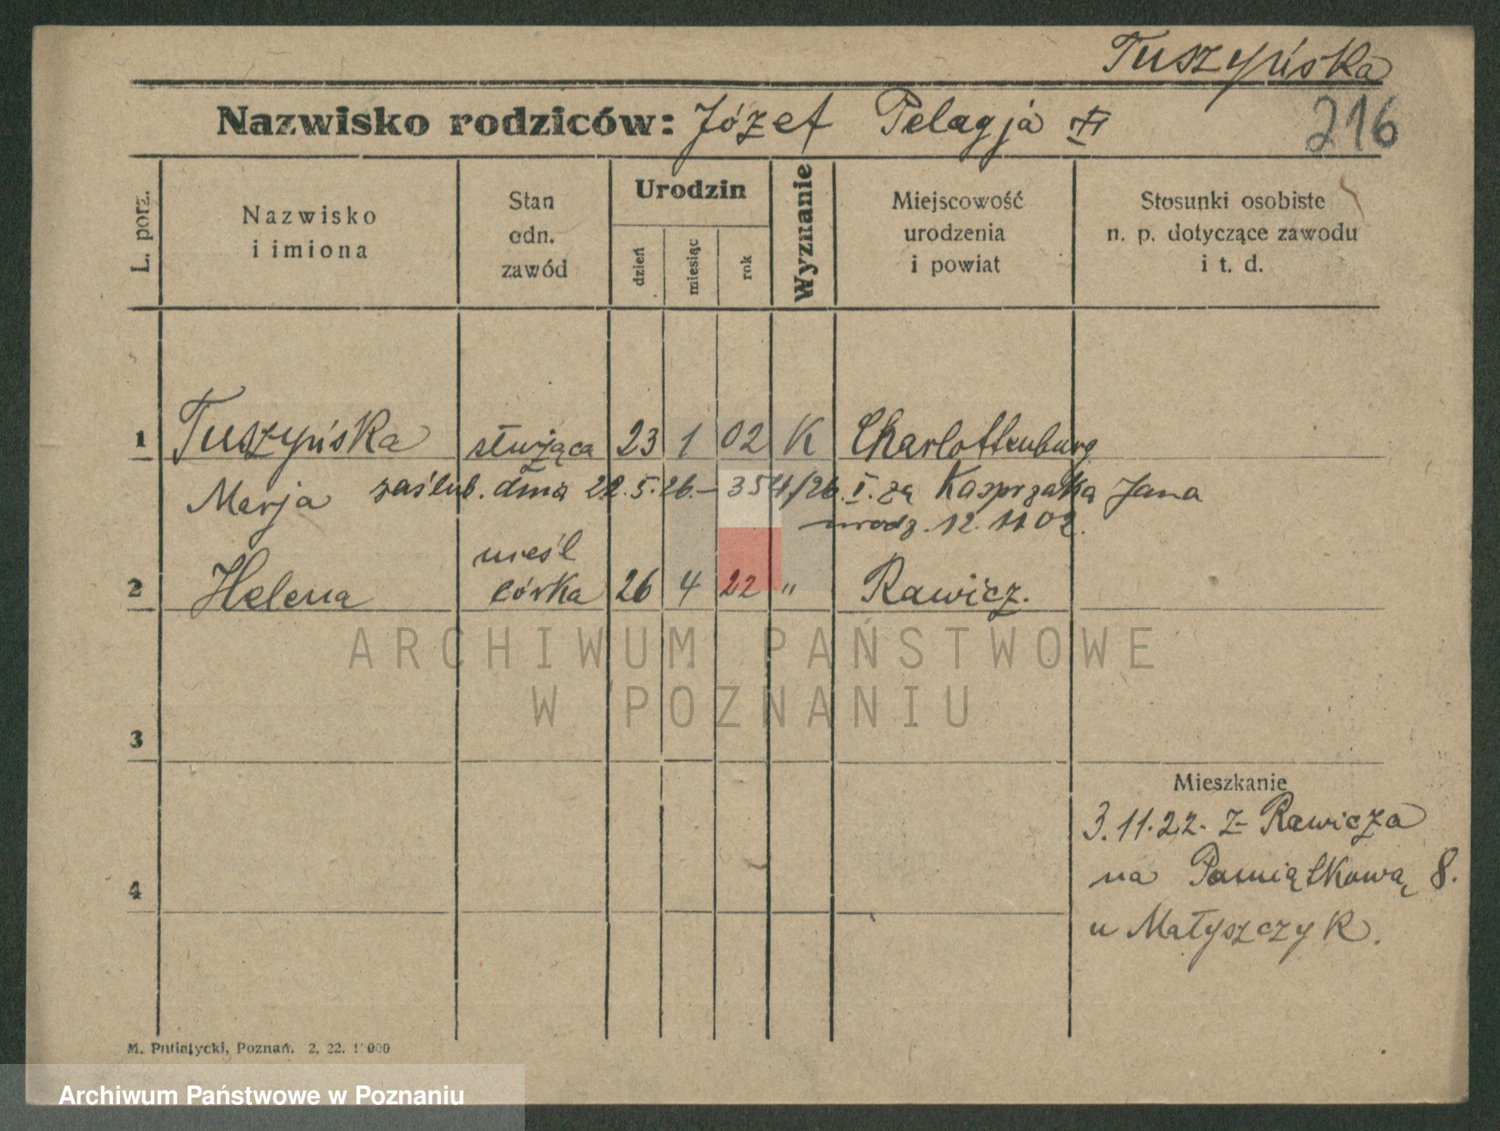 Tuszyńska
216
Nazwisko rodziców: Józef Pelagja
L. porz.
Nazwisko
i imiona
Stan
odn.
zawód
Urodzin
dzień
miesiąc
rok
Wyznanie
Miejscowość
urodzenia
i powiat
Stosunki osobiste
n. p. dotyczące zawodu
i t. d.
1 Tuszyńska służąca 23 1 02 K Charlottenburg
Marja zaślub. dnia 22.5.26.– 354/26. I. za Kasprzaka Jana
urodz. 12.11 02.
nieśl
2 Helena córka 26 4 22 " Rawicz.
ARCHIWUM PAŃSTWOWE
W POZNANIU
3
Mieszkanie
3.11.22. z Rawicza
na Pamiątkową 8.
4
u Małyszczyk.
M. Putiatycki, Poznań. 2. 22.
Archiwum Państwowe w Poznaniu